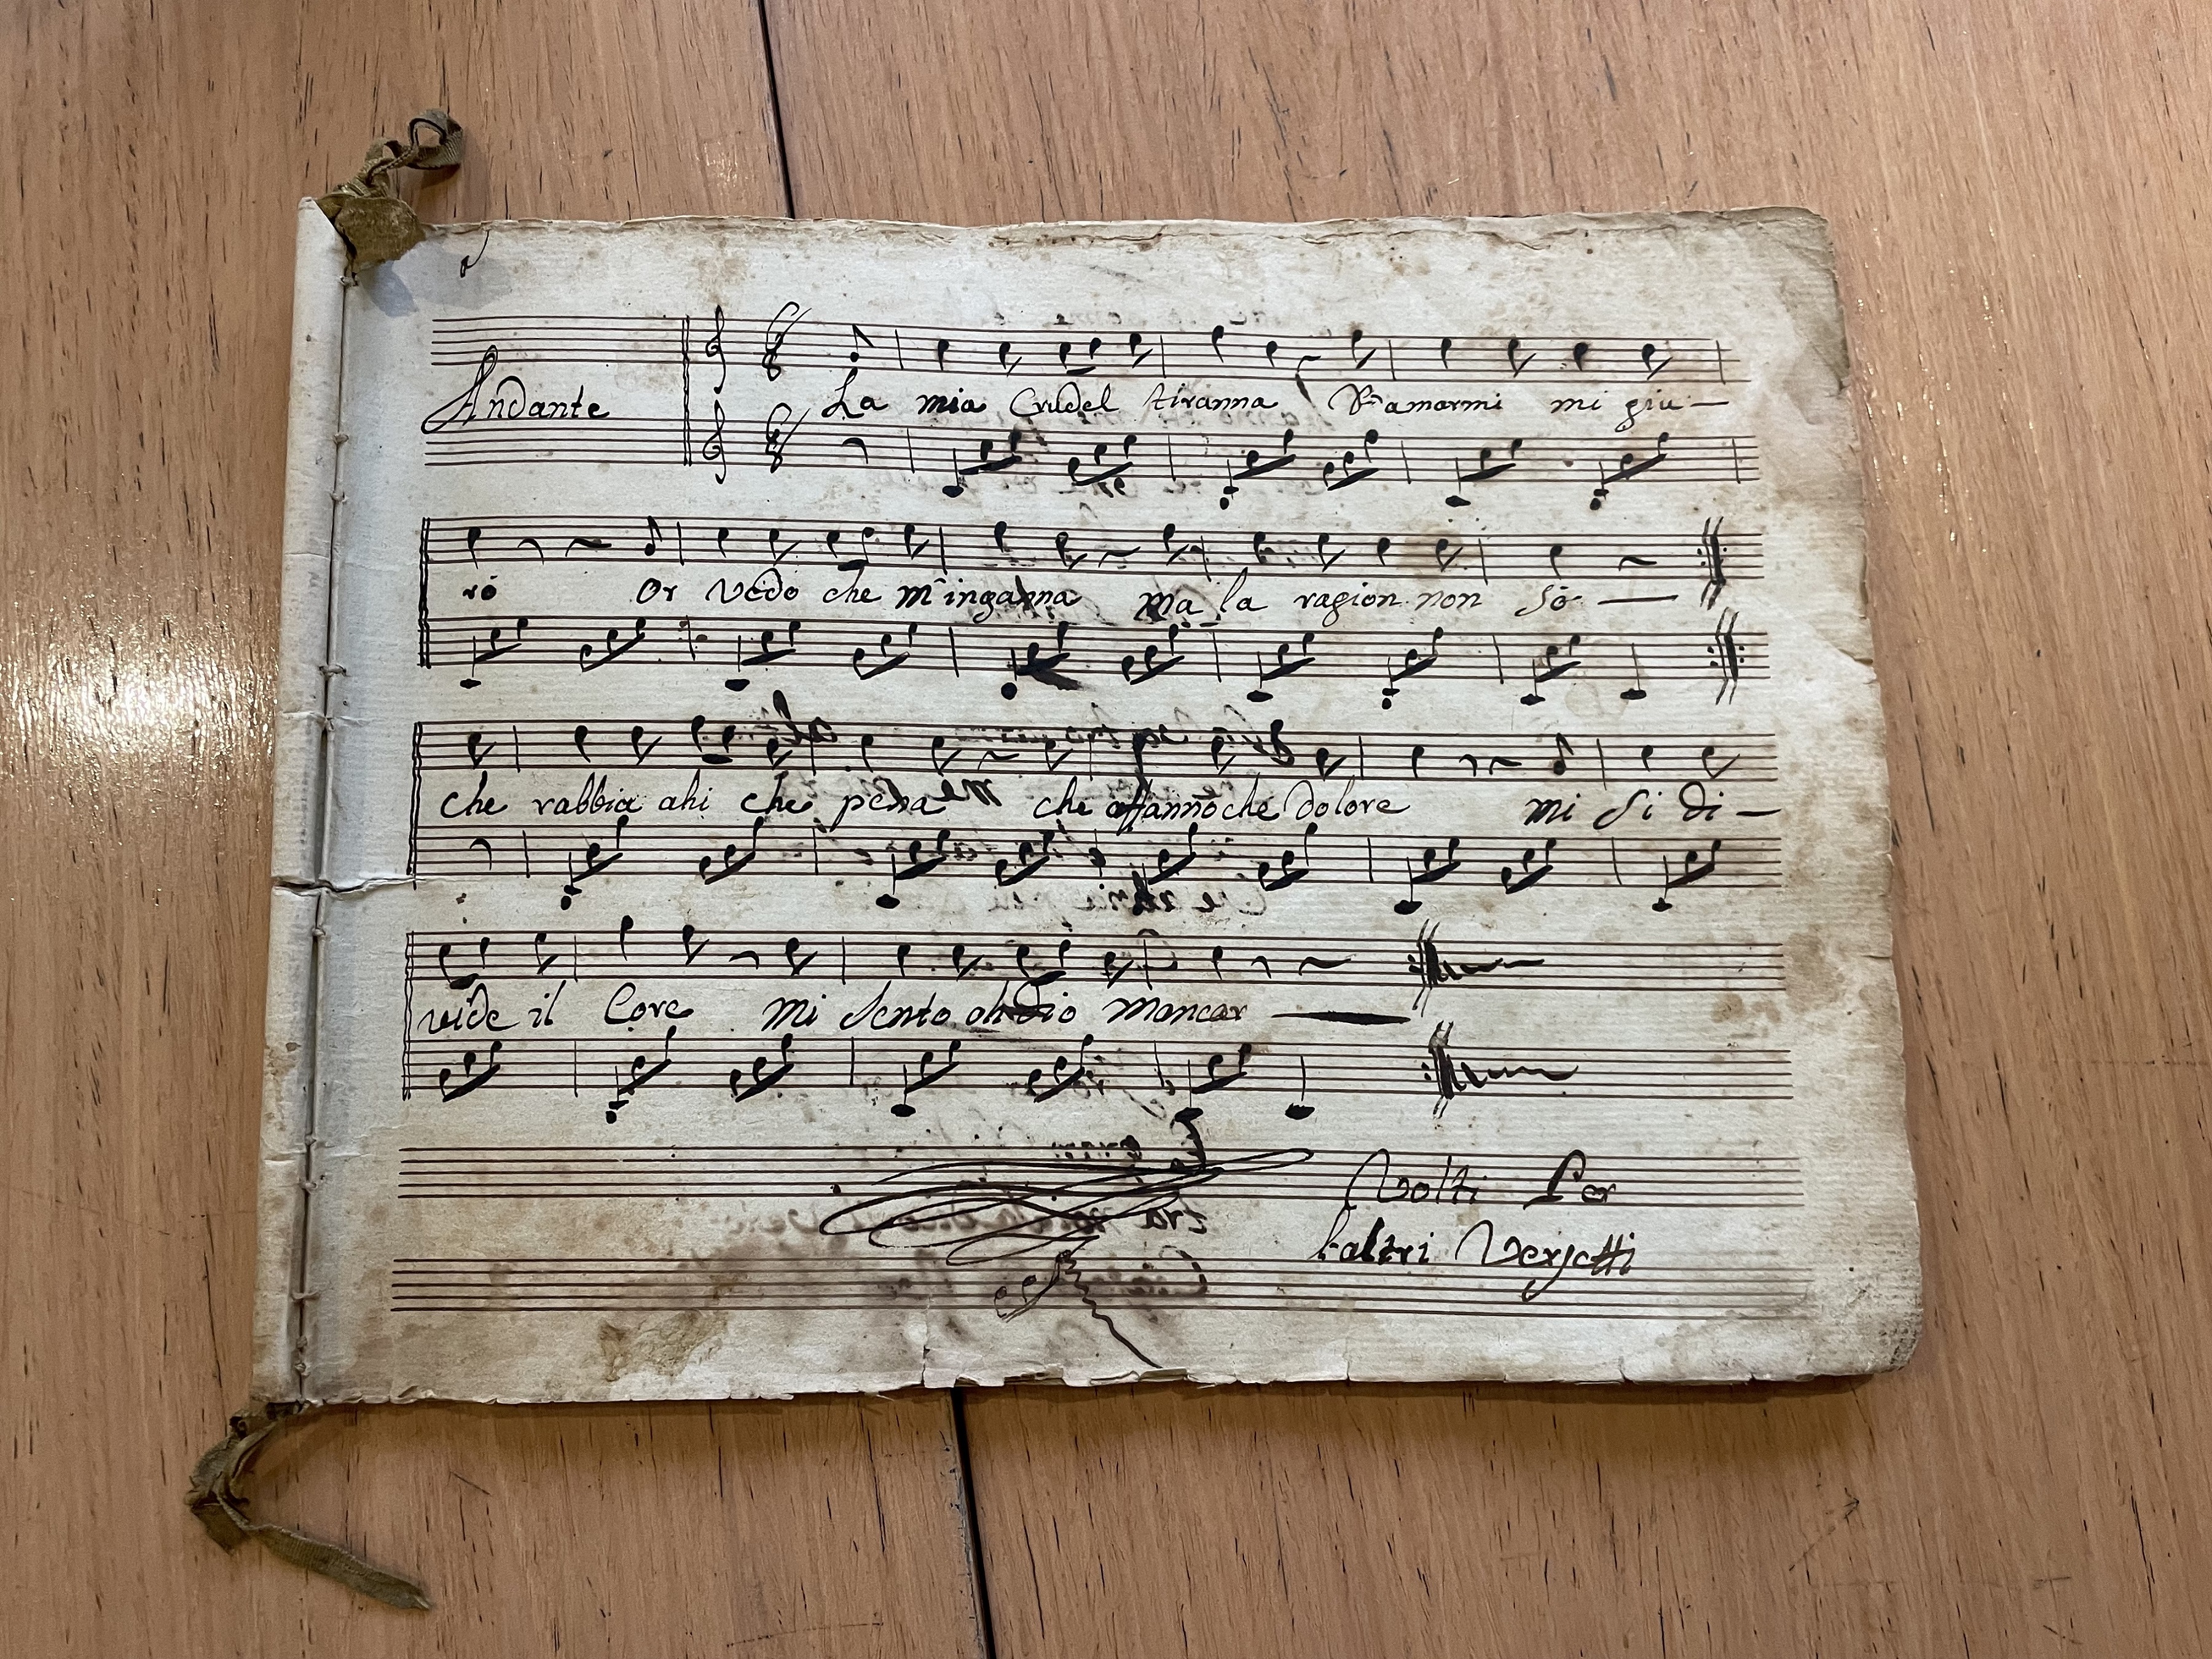 Andante
La mia Crudel tiranna D'amarmi mi giu—
rò Or vedo che m'inganna ma la ragion non sò —
che rabbia ahi che pena che affanno che dolore mi si di—
vide il Core mi sento oh dio mancar —
Volti Per
l'altri Versetti